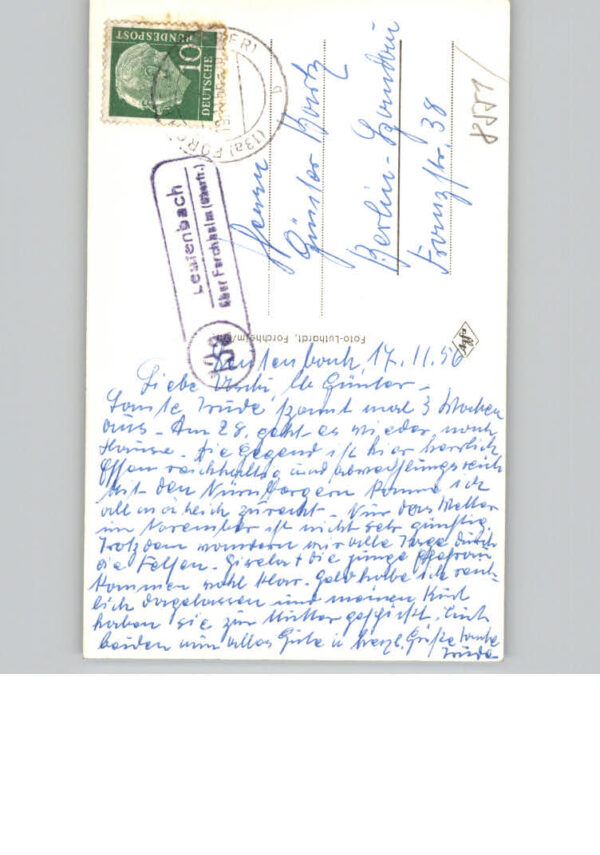 DEUTSCHE
BUNDESPOST
10
(13a) FORCH
b
Leutenbach
über Forchheim (Oberfr.)
Herrn
Günter
Berlin-Spandau
Franzstr. 38
Foto-Luthardt, Forchheim/
Agfa
Leutenbach, 17.11.56
Liebe Uschi, lb Günter –
Tante Trude spannt mal 3 Wochen
aus – Am 28. geht es wieder nach
Hause. Die Gegend ist hier herrlich
Essen reichhaltig und abwechslungsreich
Mit den Nürnbergern komme ich
allmählich zurecht – Nur das Wetter
im November ist nicht sehr günstig.
Trotzdem wandern wir alle Tage durch
die Felsen. Giselas die junge
kommen wohl klar. Geld habe ich reich-
lich dagelassen und meinen Kurt
haben sie zur Mutter geschickt. Euch
beiden nun alles Gute u herzl. Grüße Tante
Trude